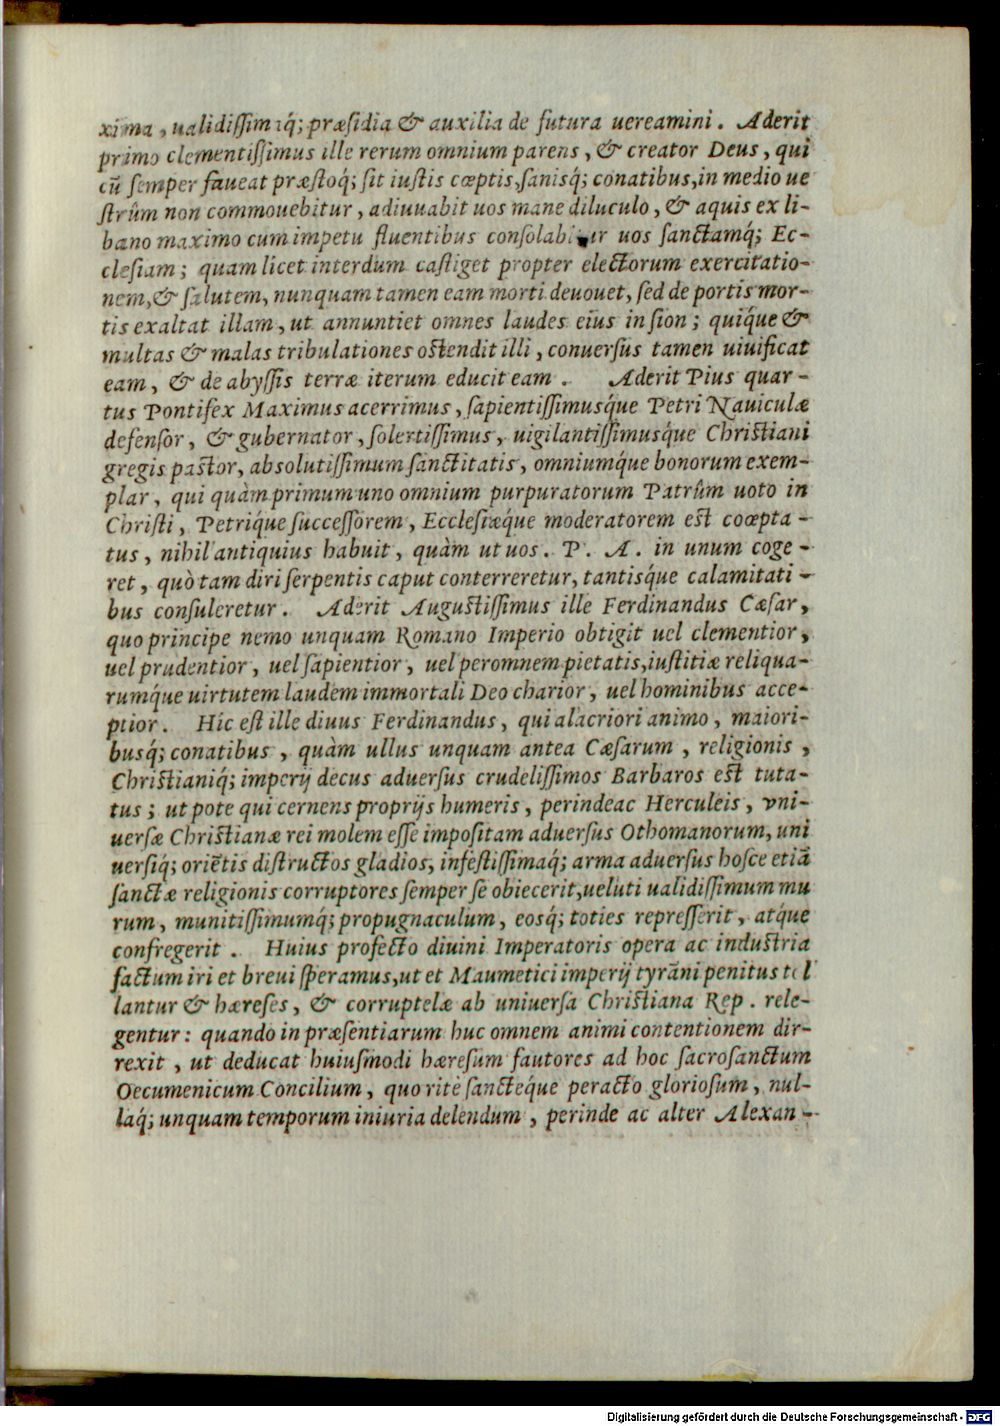 xima, ualidissimaq́; præsidia & auxilia de futura uereamini. Aderit
primo clementissimus ille rerum omnium parens, & creator Deus, qui
cũ semper faueat præstoq́; sit iustis cœptis, sanisq́; conatibus, in medio ue
strûm non commouebitur, adiuuabit uos mane diluculo, & aquis ex li-
bano maximo cum impetu fluentibus consolabitur uos sanctamq́; Ec-
clesiam; quam licet interdum castiget propter electorum exercitatio-
nem, & salutem, nunquam tamen eam morti deuouet, sed de portis mor-
tis exaltat illam, ut annuntiet omnes laudes eius in sion; quiq́ue &
multas & malas tribulationes ostendit illi, conuersus tamen uiuificat
eam, & de abyssis terræ iterum educit eam. Aderit Pius quar-
tus Pontifex Maximus acerrimus, sapientissimusq́ue Petri Nauiculæ
defensor, & gubernator, solertissimus, uigilantissimusq́ue Christiani
gregis pastor, absolutissimum sanctitatis, omniumq́ue bonorum exem-
plar, qui quàm primum uno omnium purpuratorum Patrûm uoto in
Christi, Petriq́ue successorem, Ecclesiæq́ue moderatorem est coopta-
tus, nihil antiquius habuit, quàm ut uos. P. A. in unum coge-
ret, quò tam diri serpentis caput conterreretur, tantisq́ue calamitati-
bus consuleretur. Aderit Augustissimus ille Ferdinandus Cæsar,
quo principe nemo unquam Romano Imperio obtigit uel clementior,
uel prudentior, uel sapientior, uel per omnem pietatis, iustitiæ reliqua-
rumq́ue uirtutem laudem immortali Deo charior, uel hominibus acce-
ptior. Hic est ille diuus Ferdinandus, qui alacriori animo, maiori-
busq́; conatibus, quàm ullus unquam antea Cæsarum, religionis,
Christianiq́; imperij decus aduersus crudelissimos Barbaros est tuta-
tus; ut pote qui cernens proprijs humeris, perinde ac Herculeis, vni-
uersæ Christianæ rei molem esse impositam aduersus Othomanorum, uni
uersiq́; oriẽtis districtos gladios, infestissimaq́; arma aduersus hosce etiã
sanctæ religionis corruptores semper se obiecerit, ueluti ualidissimum mu
rum, munitissimumq́; propugnaculum, eosq́; toties represserit, atq́ue
confregerit. Huius profecto diuini Imperatoris opera ac industria
factum iri et breui speramus, ut et Maumetici imperij tyrãni penitus tol
lantur & hæreses, & corruptelæ ab uniuersa Christiana Rep. rele-
gentur: quando in præsentiarum huc omnem animi contentionem dir-
rexit, ut deducat huiusmodi hæresum fautores ad hoc sacrosanctum
Oecumenicum Concilium, quo ritè sancteq́ue peracto gloriosum, nul-
laq́; unquam temporum iniuria delendum, perinde ac alter Alexan-
Digitalisierung gefördert durch die Deutsche Forschungsgemeinschaft - DFG